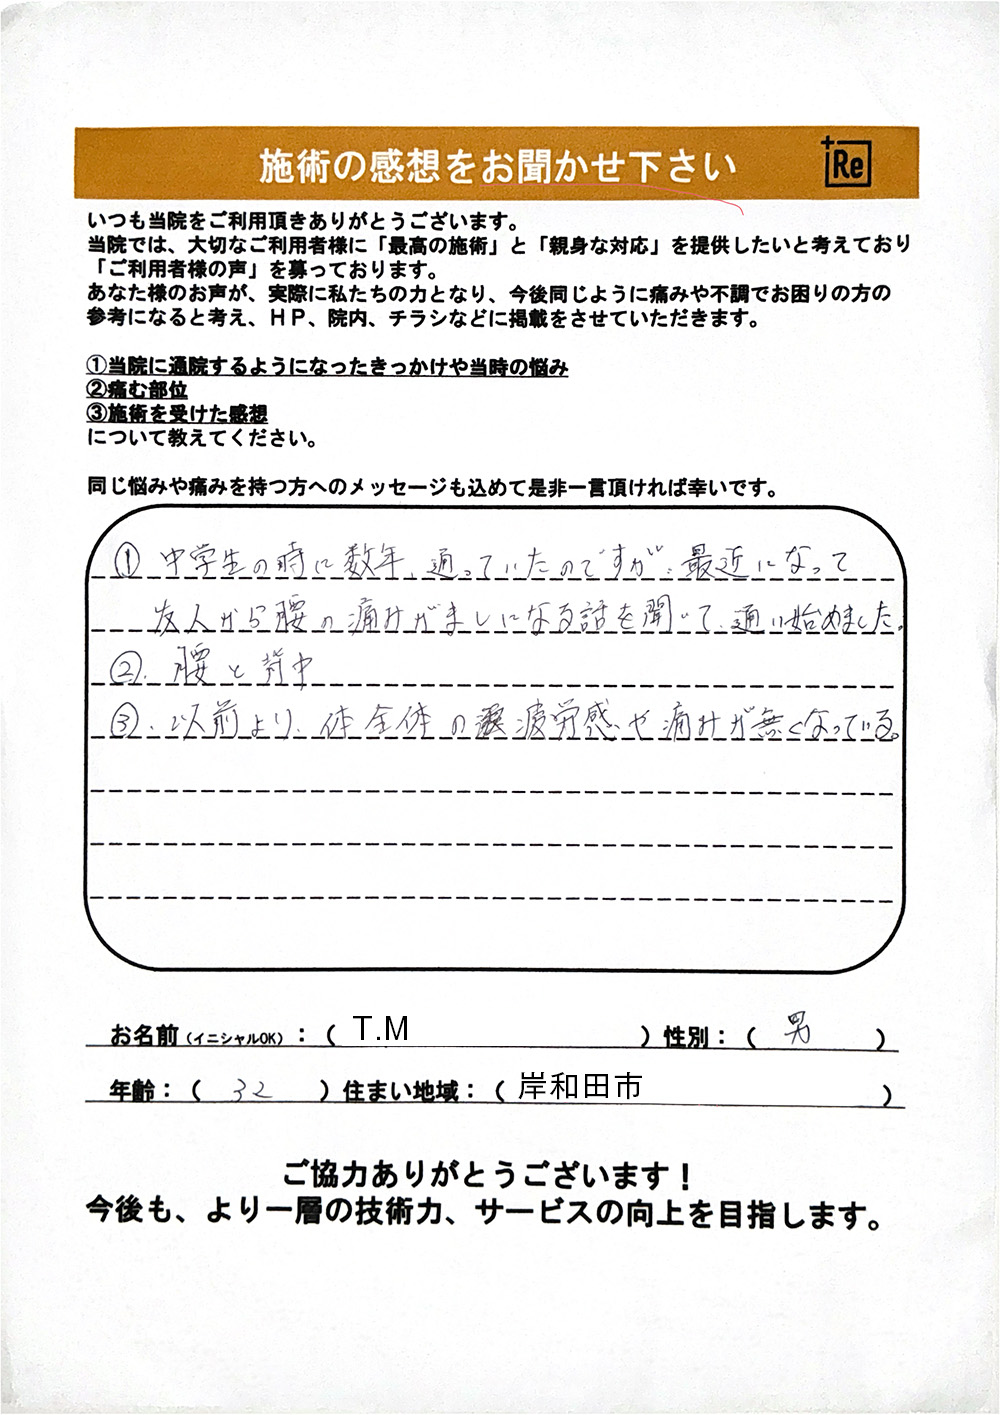 施術の感想をお聞かせ下さい
+Re
いつも当院をご利用頂きありがとうございます。
当院では、大切なご利用者様に「最高の施術」と「親身な対応」を提供したいと考えており
「ご利用者様の声」を募っております。
あなた様のお声が、実際に私たちの力となり、今後同じように痛みや不調でお困りの方の
参考になると考え、HP、院内、チラシなどに掲載をさせていただきます。
①当院に通院するようになったきっかけや当時の悩み
②痛む部位
③施術を受けた感想
について教えてください。
同じ悩みや痛みを持つ方へのメッセージも込めて是非一言頂ければ幸いです。
① 中学生の時に数年、通っていたのですが、最近になって
友人から腰の痛みがましになる話を聞いて、通い始めました。
②. 腰と背中
③. 以前より、体全体の疲労感や痛みが無くなっている。
お名前(イニシャルOK):( T.M )性別:( 男 )
年齢:( 32 )住まい地域:( 岸和田市 )
ご協力ありがとうございます!
今後も、より一層の技術力、サービスの向上を目指します。